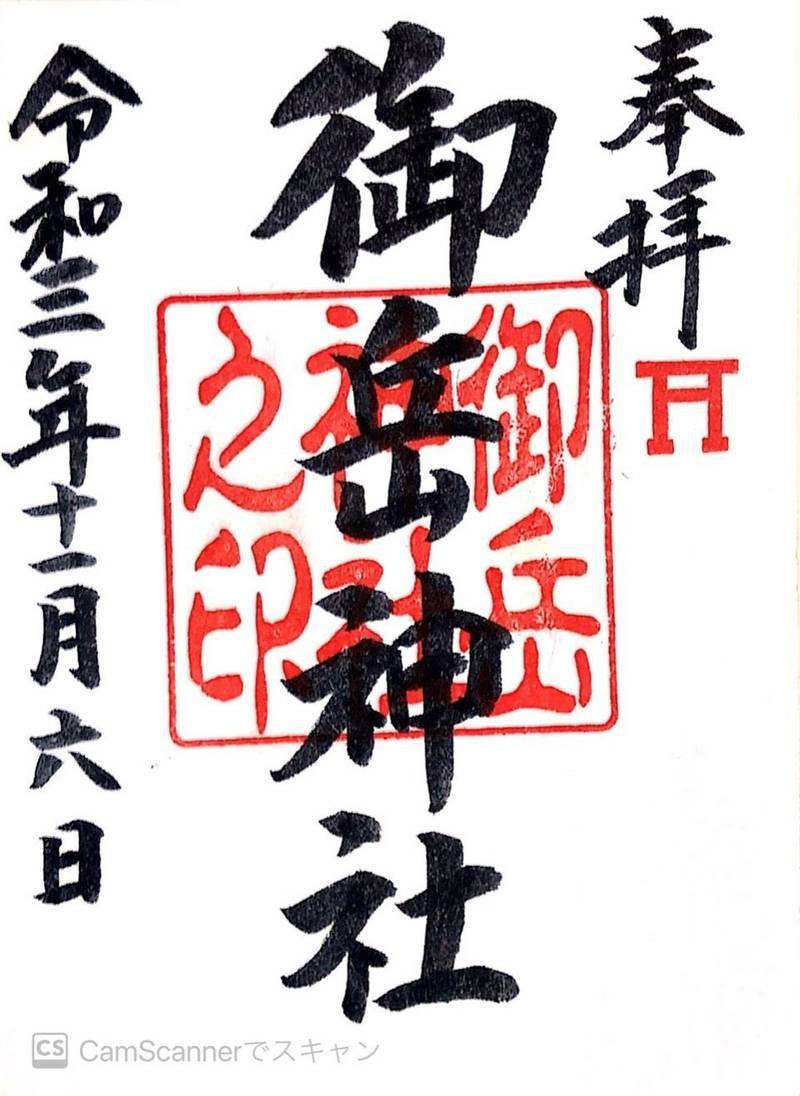 奉拝
御岳神社
御岳
神社
之印
令和三年十一月六日
CS CamScannerでスキャン